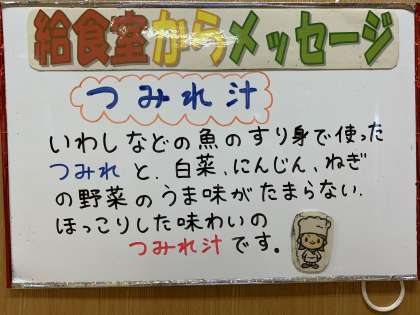 給食室からメッセージ
つみれ汁
いわしなどの魚のすり身で使った
つみれと、白菜、にんじん、ねぎ
の野菜のうま味がたまらない、
ほっこりした味わいの
つみれ汁です。